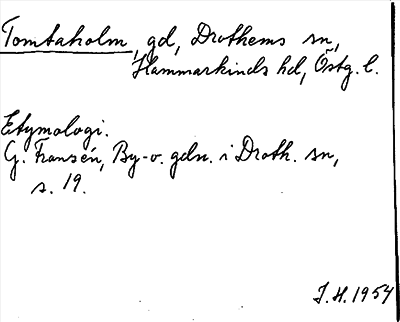 Tomtaholm, gd, Drothems sn,
Hammarkinds hd, Östg. l.
Etymologi.
G. Fransén, By- o. gdn. i Droth. sn,
s. 19.
I. H. 1954